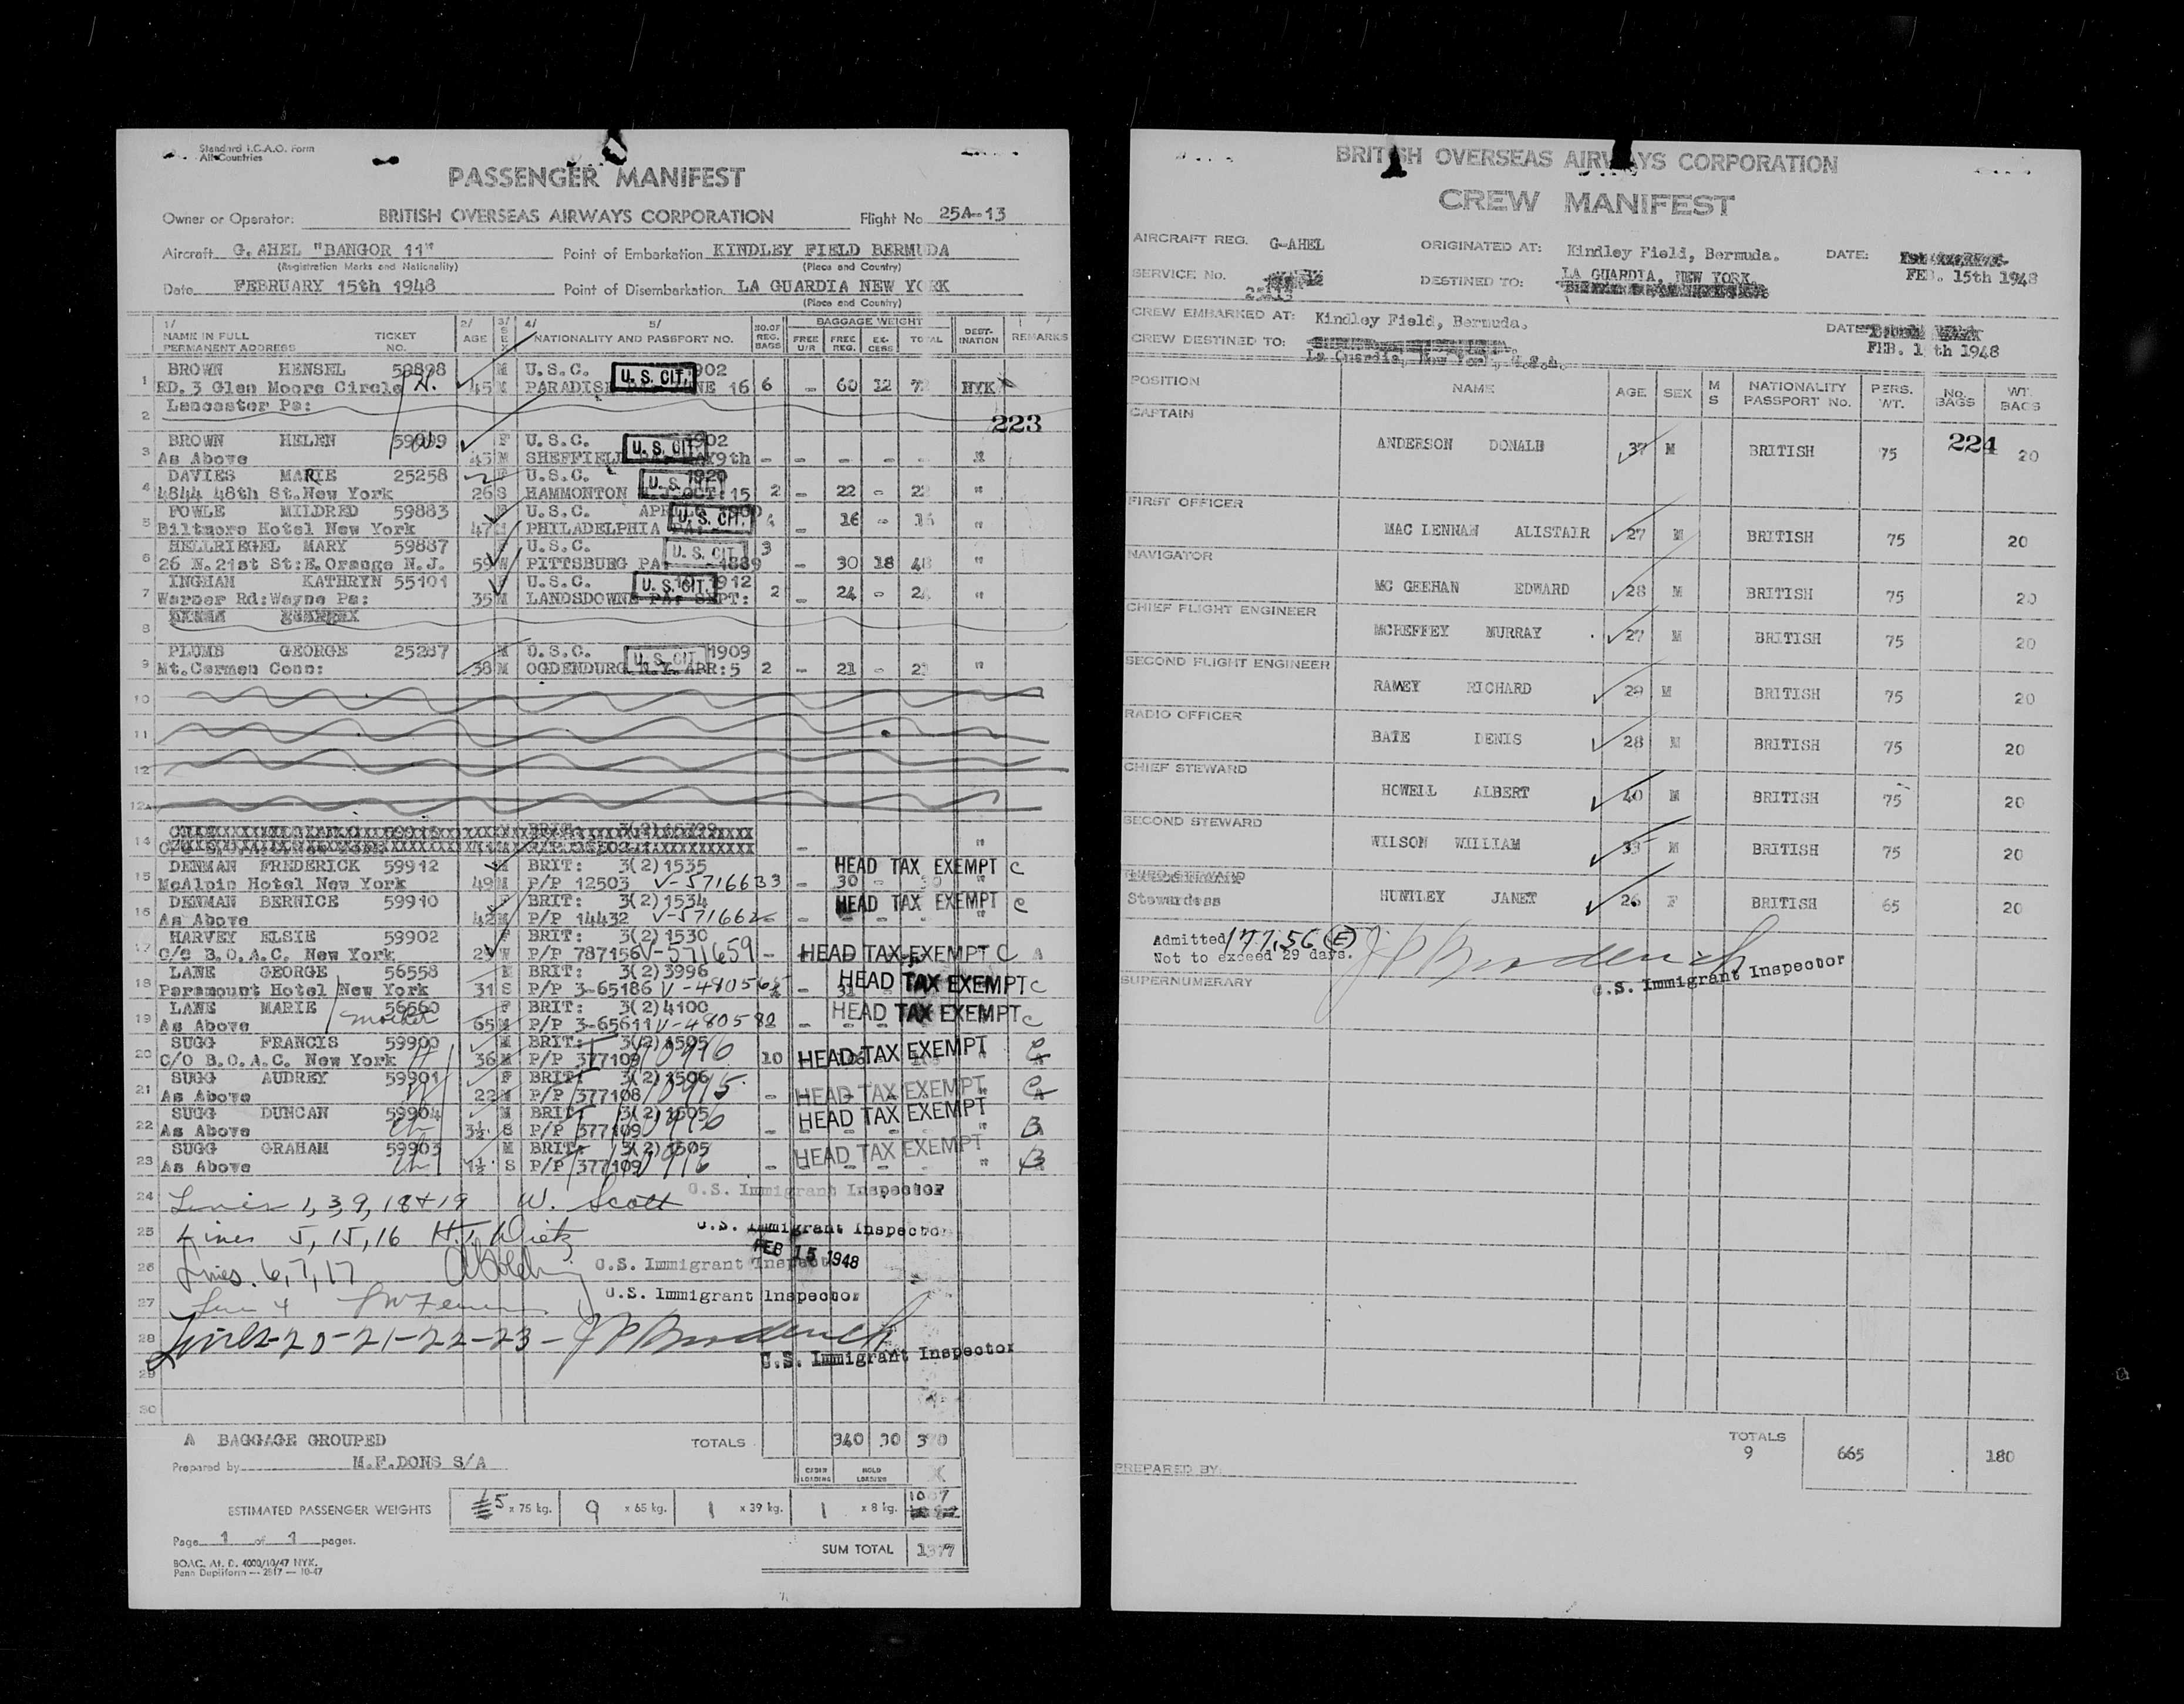 Standard I.C.A.O. Form
All Countries
PASSENGER MANIFEST
Owner or Operator: BRITISH OVERSEAS AIRWAYS CORPORATION Flight No 25A-13
Aircraft G. AHEL "BANGOR 11" Point of Embarkation KINDLEY FIELD BERMUDA
(Registration Marks and Nationality) (Place and Country)
Date FEBRUARY 15th 1948 Point of Disembarkation LA GUARDIA NEW YORK
(Place and Country)
1/ NAME IN FULL PERMANENT ADDRESS TICKET NO. 2/ AGE 3/ SEX 4/ NATIONALITY AND PASSPORT NO. 5/ NO. OF REG. BAGS BAGGAGE WEIGHT FREE U/R FREE REG. EXCESS TOTAL DESTINATION 7/ REMARKS
BROWN HENSEL 59898 M U.S.C. 1902
1 RD.3 Glen Moore Circle 45 M U.S. CIT. JUNE 16 6 - 60 12 NYK
2 Lancaster Pa:
223
BROWN HELEN F U.S.C. 1902
3 As Above 45 M SHEFFIELD U.S. CIT. MAY 9th - - - - - "
DAVIES MARIE 25258 F U.S.C. 1920
4 4844 48th St. New York 26 S HAMMONTON U.S. CIT. OCT: 15 2 - 22 - 22 "
FOWLE MILDRED 59883 F U.S.C.
5 Biltmore Hotel New York 47 PHILADELPHIA U.S. CIT. - 16 - 16 "
HELLRIEGEL MARY 59887 U.S.C. U.S. CIT. 3
6 26 N. 21st St: E. Orange N.J. 59 W PITTSBURG PA: 1889 - 30 18 48 "
INGHAM KATHRYN 55101 F U.S.C. U.S. CIT. 1912
7 Warner Rd: Wayne Pa: 35 M LANDSDOWNE PA: SEPT: 2 - 24 - 24 "
8
PLUMB GEORGE 25287 M U.S.C. 1909
9 Mt. Carmen Conn: 38 M OGDENDURG N.Y. U.S. CIT. APR: 5 2 - 21 - 21 "
10
11
12
12A
14
DENMAN FREDERICK 59912 M BRIT: 3(2)1535 HEAD TAX EXEMPT C
15 McAlpin Hotel New York 49 M P/P 12503 V-571663 3 - 30 - 30 "
DENMAN BERNICE 59910 F BRIT: 3(2)1534 HEAD TAX EXEMPT C
16 As Above 42 M P/P 14432 V-571662 - - - - "
HARVEY ELSIE 59902 F BRIT: 3(2)1530
17 C/O B.O.A.C. New York 29 W P/P 787156 V-571659 - HEAD TAX EXEMPT C A
LANE GEORGE 56558 M BRIT: 3(2)3996
18 Paramount Hotel New York 31 S P/P 3-65186 HEAD TAX EXEMPT C
LANE MARIE 56560 F BRIT: 3(2)4100 HEAD TAX EXEMPT C
19 As Above mother 65 M P/P 3-65611 V-48058
SUGG FRANCIS 59900 M BRIT: 3(2)1505
20 C/O B.O.A.C. New York 36 M P/P 377109 10 HEAD TAX EXEMPT
SUGG AUDREY 59901 F BRIT: 3(2)1506
21 As Above 22 M P/P 377108 - HEAD TAX EXEMPT "
SUGG DUNCAN 59904 M BRIT: 3(2)1505 HEAD TAX EXEMPT
22 As Above 3½ S P/P 377109 - "  B
SUGG GRAHAM 59903 M BRIT: 3(2)1505 HEAD TAX EXEMPT
23 As Above 1½ S P/P 377109 - " B
24 Lines 1, 3, 9, 18 + 19 W. Scott U.S. Immigrant Inspector
25 Lines 5, 15, 16 H.J. Dietz U.S. Immigrant Inspector
FEB 15 1948
26 Lines. 6, 7, 17 U.S. Immigrant Inspector
27 Line 4 U.S. Immigrant Inspector
28 Lines-20-21-22-23- J P Broderick
29 U.S. Immigrant Inspector
30
A BAGGAGE GROUPED TOTALS 340 30 370
Prepared by M.F.DONS S/A CABIN LOADING HOLD LOADING
ESTIMATED PASSENGER WEIGHTS 5 x 75 kg. 9 x 65 kg. 1 x 39 kg. 1 x 8 kg. 1007
Page 1 of 1 pages.
SUM TOTAL 1377
BOAC. At. D. 4000/10/47 NYK.
Penn Dupliform — 2517 — 10-47
BRITISH OVERSEAS AIRWAYS CORPORATION
CREW MANIFEST
AIRCRAFT REG. G-AHEL ORIGINATED AT: Kindley Field, Bermuda. DATE:
FEB. 15th 1948
SERVICE No. DESTINED TO: LA GUARDIA, NEW YORK.
CREW EMBARKED AT: Kindley Field, Bermuda. DATE
FEB. 1 th 1948
CREW DESTINED TO: La Guardia, New York, U.S.A.
POSITION NAME AGE SEX M S NATIONALITY PASSPORT No. PERS. WT. No. BAGS WT. BAGS
CAPTAIN
224
ANDERSON DONALD 37 M BRITISH 75 20
FIRST OFFICER
MAC LENNAN ALISTAIR 27 M BRITISH 75 20
NAVIGATOR
MC GEEHAN EDWARD 28 M BRITISH 75 20
CHIEF FLIGHT ENGINEER
MCHEFFEY MURRAY 27 M BRITISH 75 20
SECOND FLIGHT ENGINEER
RAMEY RICHARD 29 M BRITISH 75 20
RADIO OFFICER
BATE DENIS 28 M BRITISH 75 20
CHIEF STEWARD
HOWELL ALBERT 40 M BRITISH 75 20
SECOND STEWARD
WILSON WILLIAM 33 M BRITISH 75 20
Stewardess HUNTLEY JANET 26 F BRITISH 65 20
Admitted 177.56 (E) J P Broderick
Not to exceed 29 days.
U.S. Immigrant Inspector
SUPERNUMERARY
TOTALS
9 665 180
PREPARED BY: